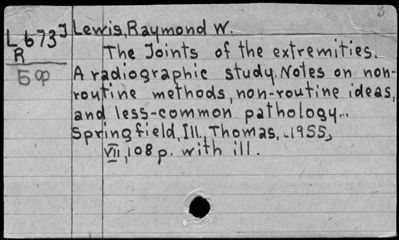 3
L 673 J Lewis, Raymond W.
R The Joints of the extremities.
5 op A radiographic study. Notes on non-
routine methods, non-routine ideas,
and less-common pathology...
Springfield, Ill. Thomas, 1955,
VII, 108 p. with ill.